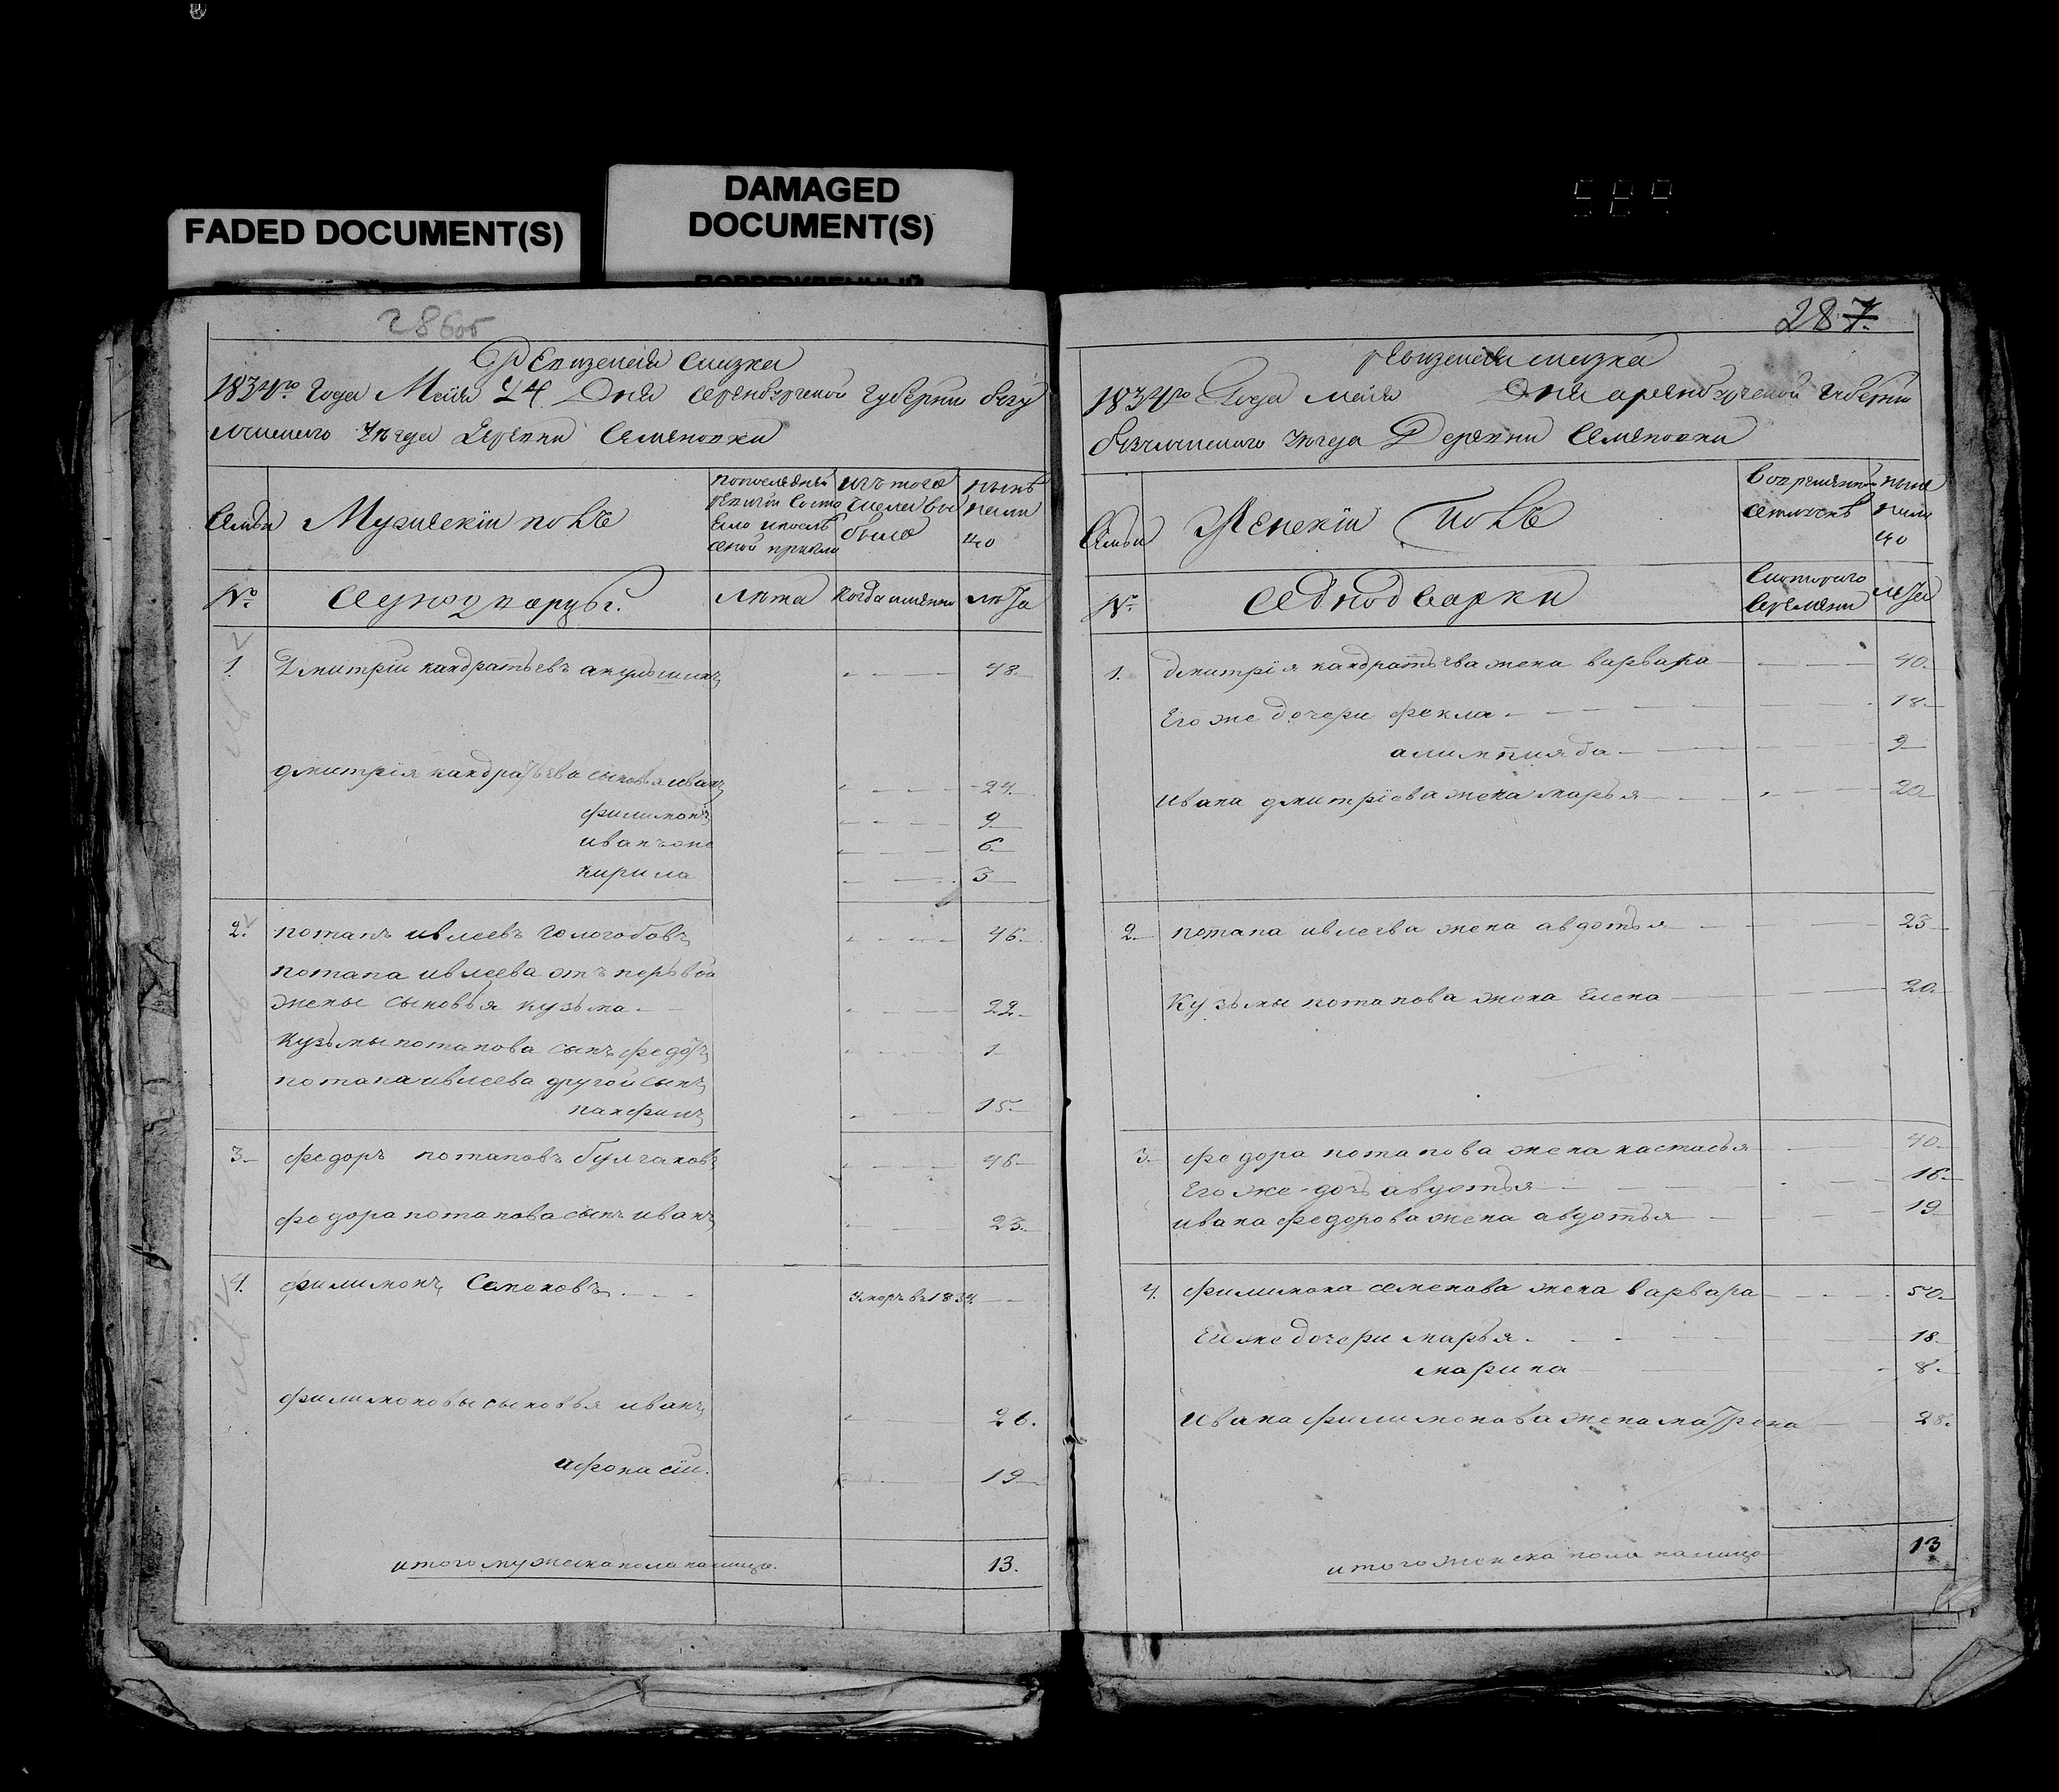 FADED DOCUMENT(S)
DAMAGED
DOCUMENT(S)
286об
Ревизская сказка
1834го Года Маия 24 Дня оренбургской губерни бугу
лминскаго уъзда Деревни Семеновки
Семьи
Мужискiи полъ
попоследней
ревизiи состо
яло ипослъ
оной прибыло
изъ того
числа вы
было
нынъ
нали
цо
№
лъта
когда имянно
лъта
1. Дмитрiи кандратьевъ акульшинъ 48
дмитрiя кандратьева сыновья иванъ 24
филимонъ 9
иванъ оне 6
кирила 3
2. потапъ ивлеевъ гологобовъ 46
потапа ивлеева отъ перьвой
жены сыновья кузьма 22
кузьмы потапова сынъ федотъ 1
потапа ивлеева другой сынъ
панфилъ 15
3 федоръ потаповъ булгаковъ 46
федора потапова сынъ иванъ 23
4. филимонъ Семеновъ умеръ в 1834
филимоновы сыновья иванъ 26.
афонасiи. 19
итого мужеска пола налицо. 13.
287.
ревизская сказка
1834го Года маия Дня оренбургской губерни
бугулминскаго уъзда Деревни Семеновки
Семьи
Женскiи полъ
Вовременной
отлучкъ
ныне
нали
цо
№
однодварки
Скоторого
Времени
лъта
1. дмитрiя кандратьева жена варвара 40
Его же дочери фекла 18
9
ивана дмитрiева жена марья 20
2 потапа ивлеева жена авдотья 23
Кузьмы потапова жена Елена 20
3 федора потапова жена настасья 40
Его же дочь авдотья 16
ивана федорова жена авдотья 19
4. филимона семенова жена варвара 50
Егоже дочери марья 18
марина 8
Ивана филимонова жена матрена 28.
итого женска пола налицо 13